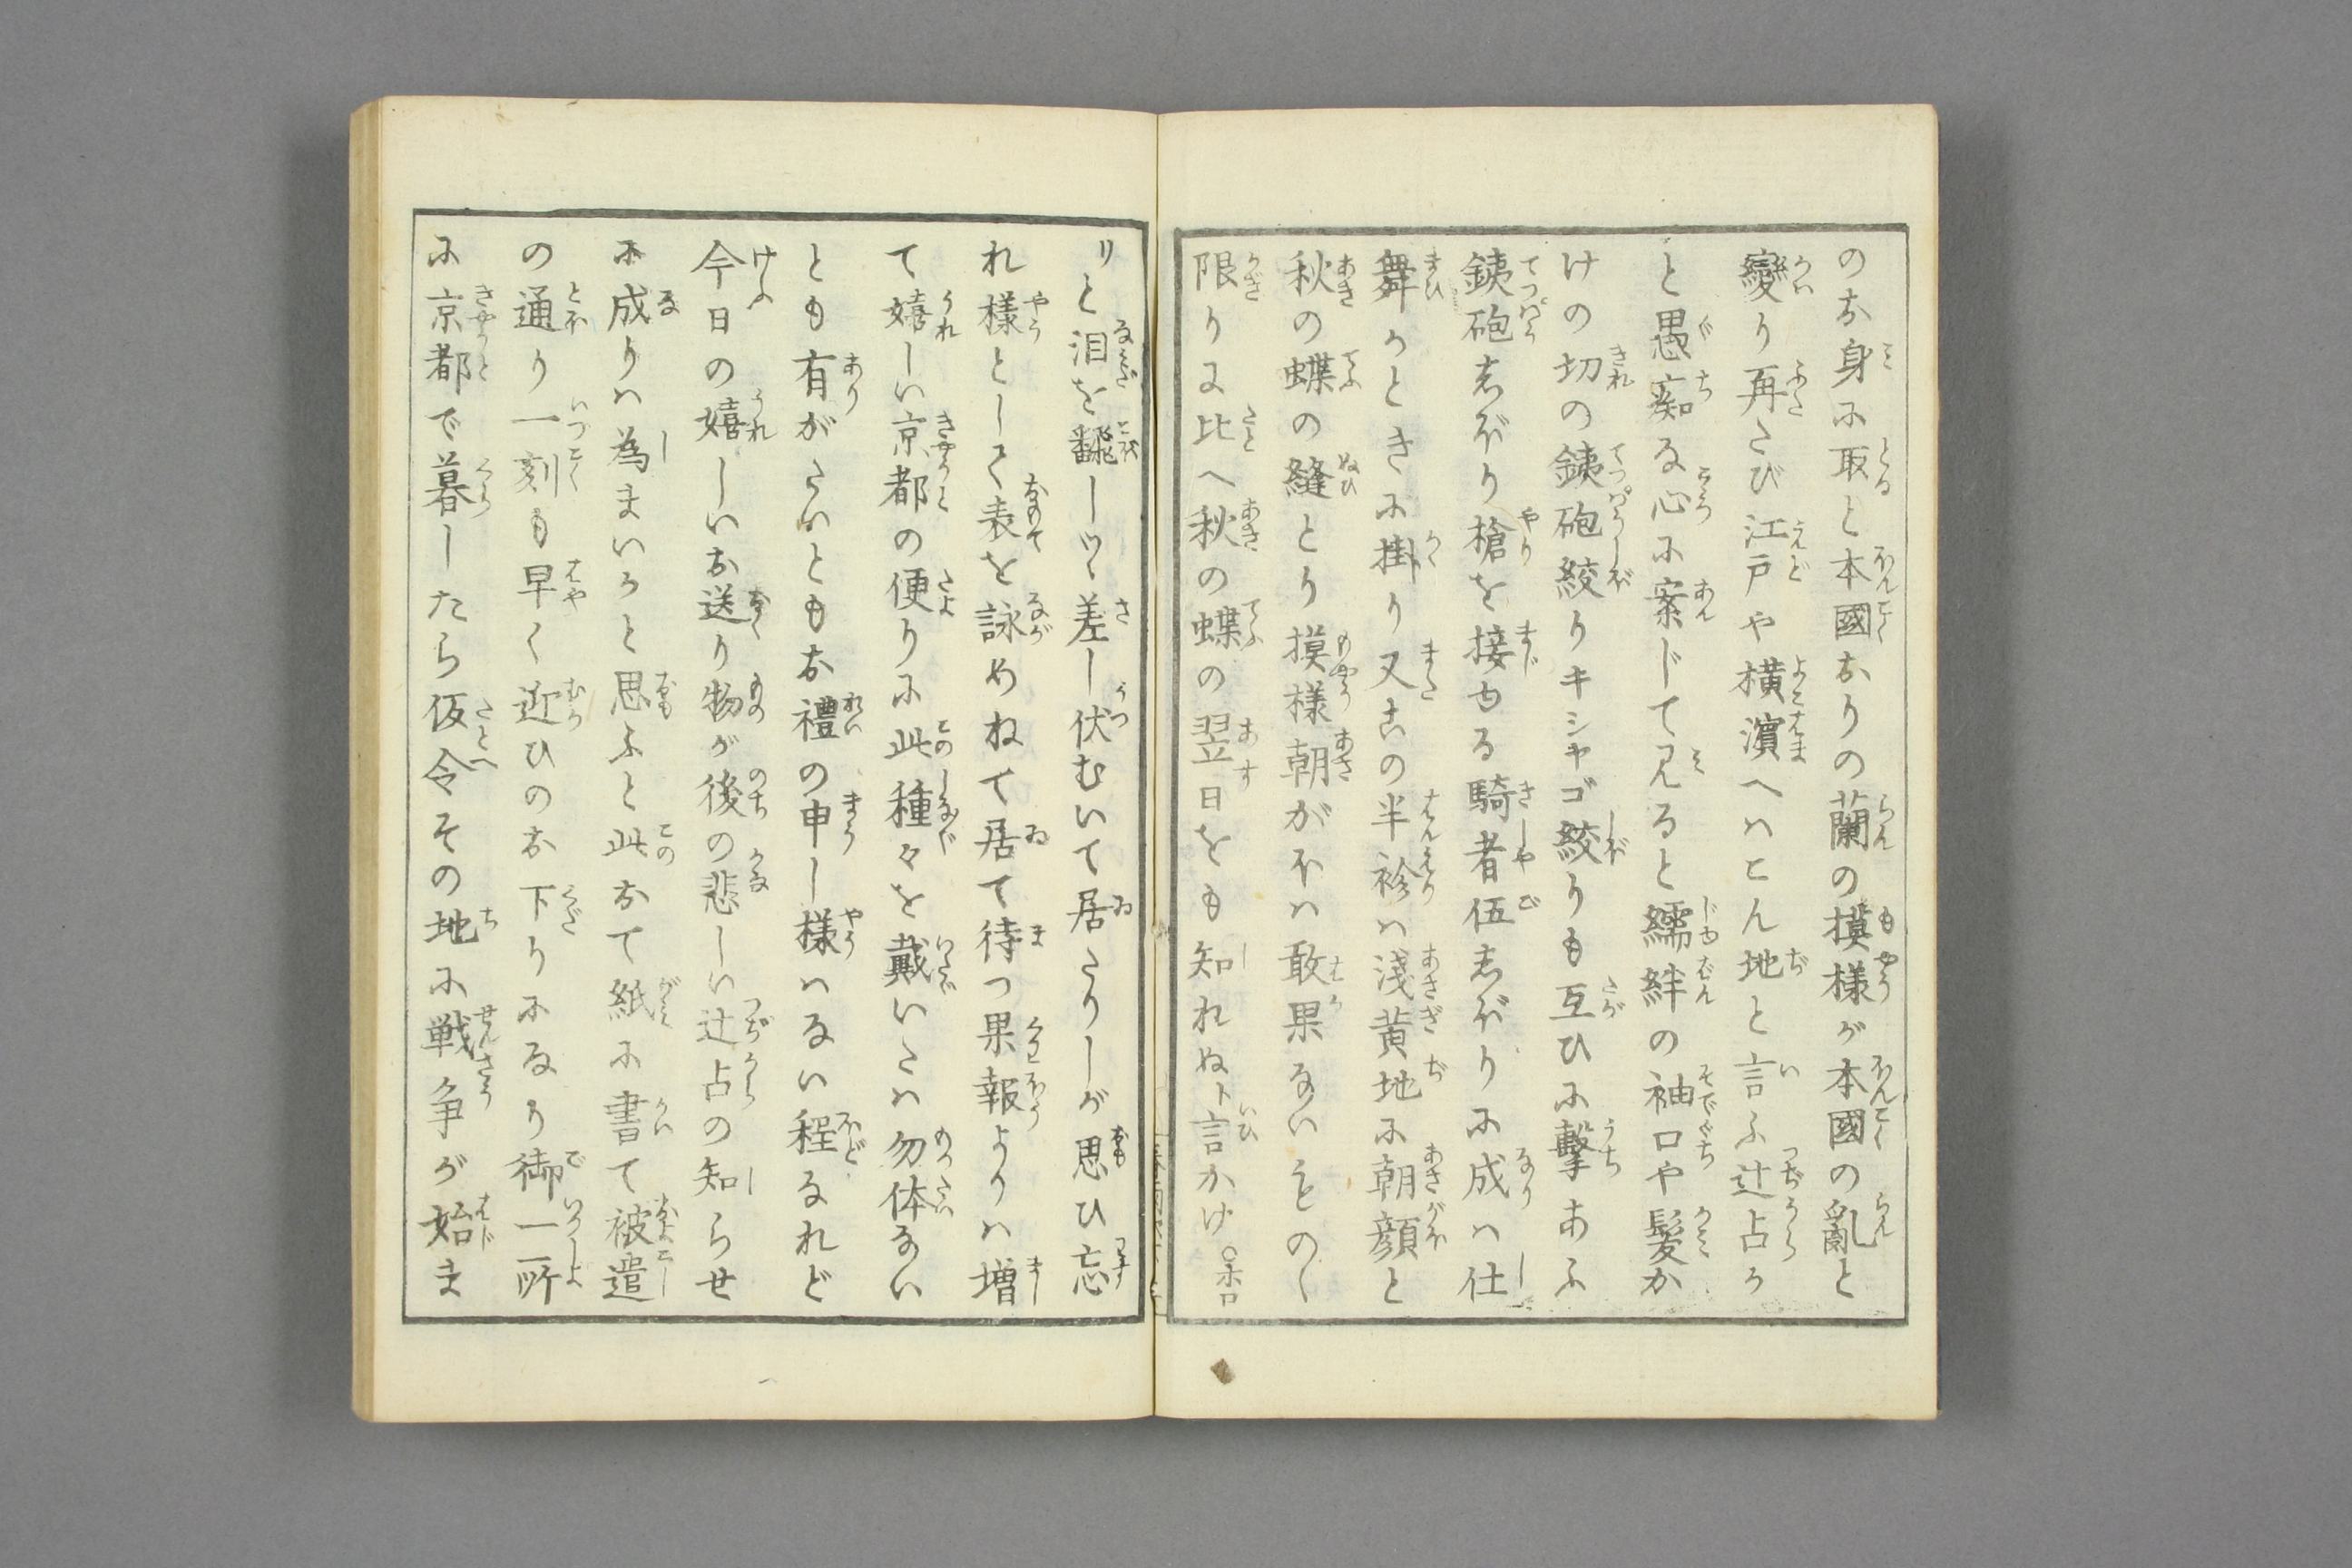 のお身に取と本國おりの蘭の摸様が本國の亂と
變り再たび江戸や横濱へハとん地と言ふ辻占か
と愚痴な心に案じて見ると繻絆の袖口や髪か
けの切の銕砲絞りキシャゴ絞りも互ひに撃あふ
銕砲しぼり槍を接もる騎者伍しぼりに成ハ仕
舞かときに掛り又この半衿ハ淺黄地に朝顔と
秋の蝶の縫とり摸様朝がほハ敢果ないものゝ
限りに比へ秋の蝶の翌日をも知れぬト言かけ○ホロ
リと泪を飜しツヽ差し伏むいて居たりしが思ひ忘
れ様として表を詠めねて居て待つ果報よりハ増
て嬉しい京都の便りに此種々を戴いたハ勿体ない
とも有がたいともお禮の申し様ハない程なれど
今日の嬉しいお送り物が後の悲しい辻占の知らせ
に成りハ為まいかと思ふと此おて紙に書て被遣
の通り一刻も早く迎ひのお下りになり御一所
に京都で暮したら仮令その地に戦争が始ま